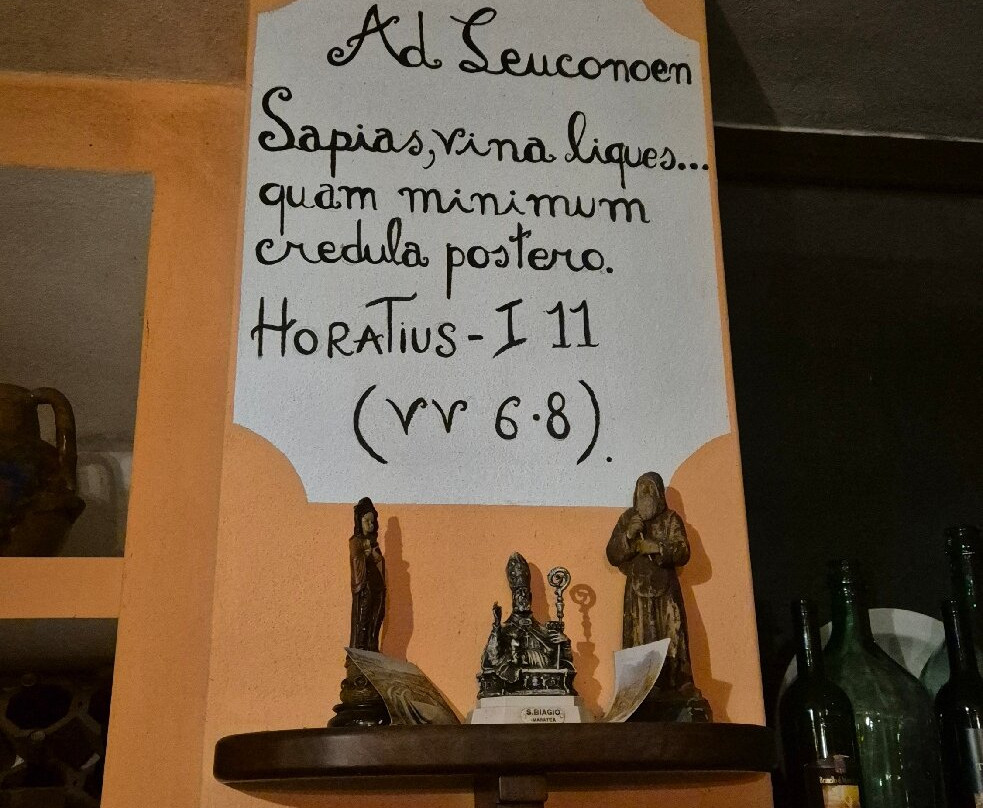 Ad Leuconoen
Sapias, vina liques...
quam minimum
credula postero.
HORATIUS - I 11
(vv 6.8).
S. BIAGIO
MARATEA